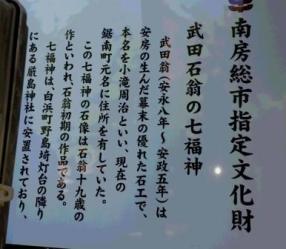 南房総市指定文化財
武田石翁の七福神
武田翁（安永八年〜安政五年）は
安房の生んだ幕末の優れた石工で、
本名を小滝周治といい、現在の
鋸南町元名に住所を有していた。
この七福神の石像は石翁十九歳の
作といわれ、石翁初期の作品である。
七福神は、白浜町野島埼灯台の隣り
にある厳島神社に安置されており、